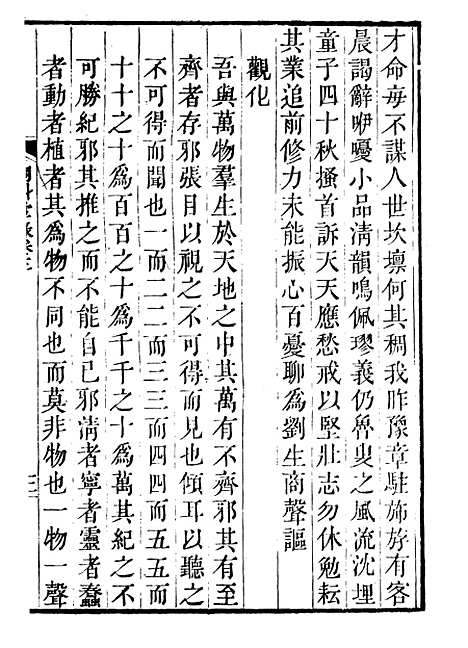 才命每不謀人世坎壈何其稠我昨豫章駐斾好有客
晨謁辭咿嚘小品淸韻鳴佩璆義仍魯叟之風流沈埋
童子四十秋搔首訴天天應愁戒以堅壯志勿休勉耘
其業追前修力未能振心百憂聊為劉生商聲謳
觀化
吾與萬物羣生於天地之中其萬有不齊邪其有至
齊者存邪張目以視之不可得而見也傾耳以聽之
不可得而聞也一而二二而三三而四四而五五而
十十之十為百百之十為千千之十為萬其紀之不
可勝紀邪其推之而不能自已邪淸者寧者靈者蠢
者動者植者其為物不同也而莫非物也一物一聲